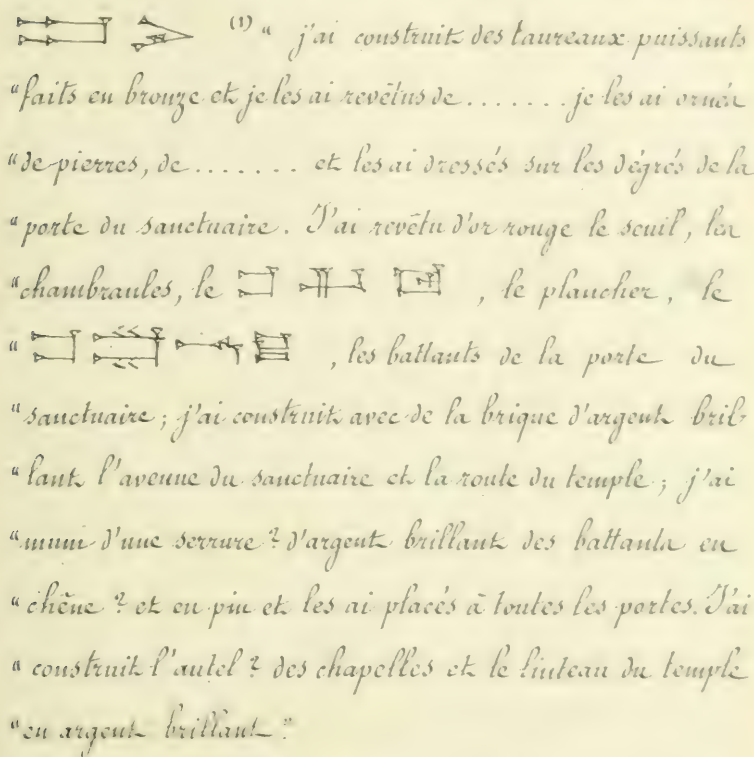 (1) " j'ai construit des taureaux puissants
" faits en bronze et je les ai revêtus de ....... je les ai ornés
" de pierres, de ....... et les ai dressés sur les dégrés de la
" porte du sanctuaire. J'ai revêtu d'or rouge le seuil, les
" chambranles, le , le plancher, le
" , les battants de la porte du
" sanctuaire ; j'ai construit avec de la brique d'argent bril-
" lant l'avenue du sanctuaire et la route du temple ; j'ai
" muni d'une serrure ? d'argent brillant des battants en
" chêne ? et en pin et les ai placés à toutes les portes. J'ai
" construit l'autel ? des chapelles et le linteau du temple
" en argent brillant "